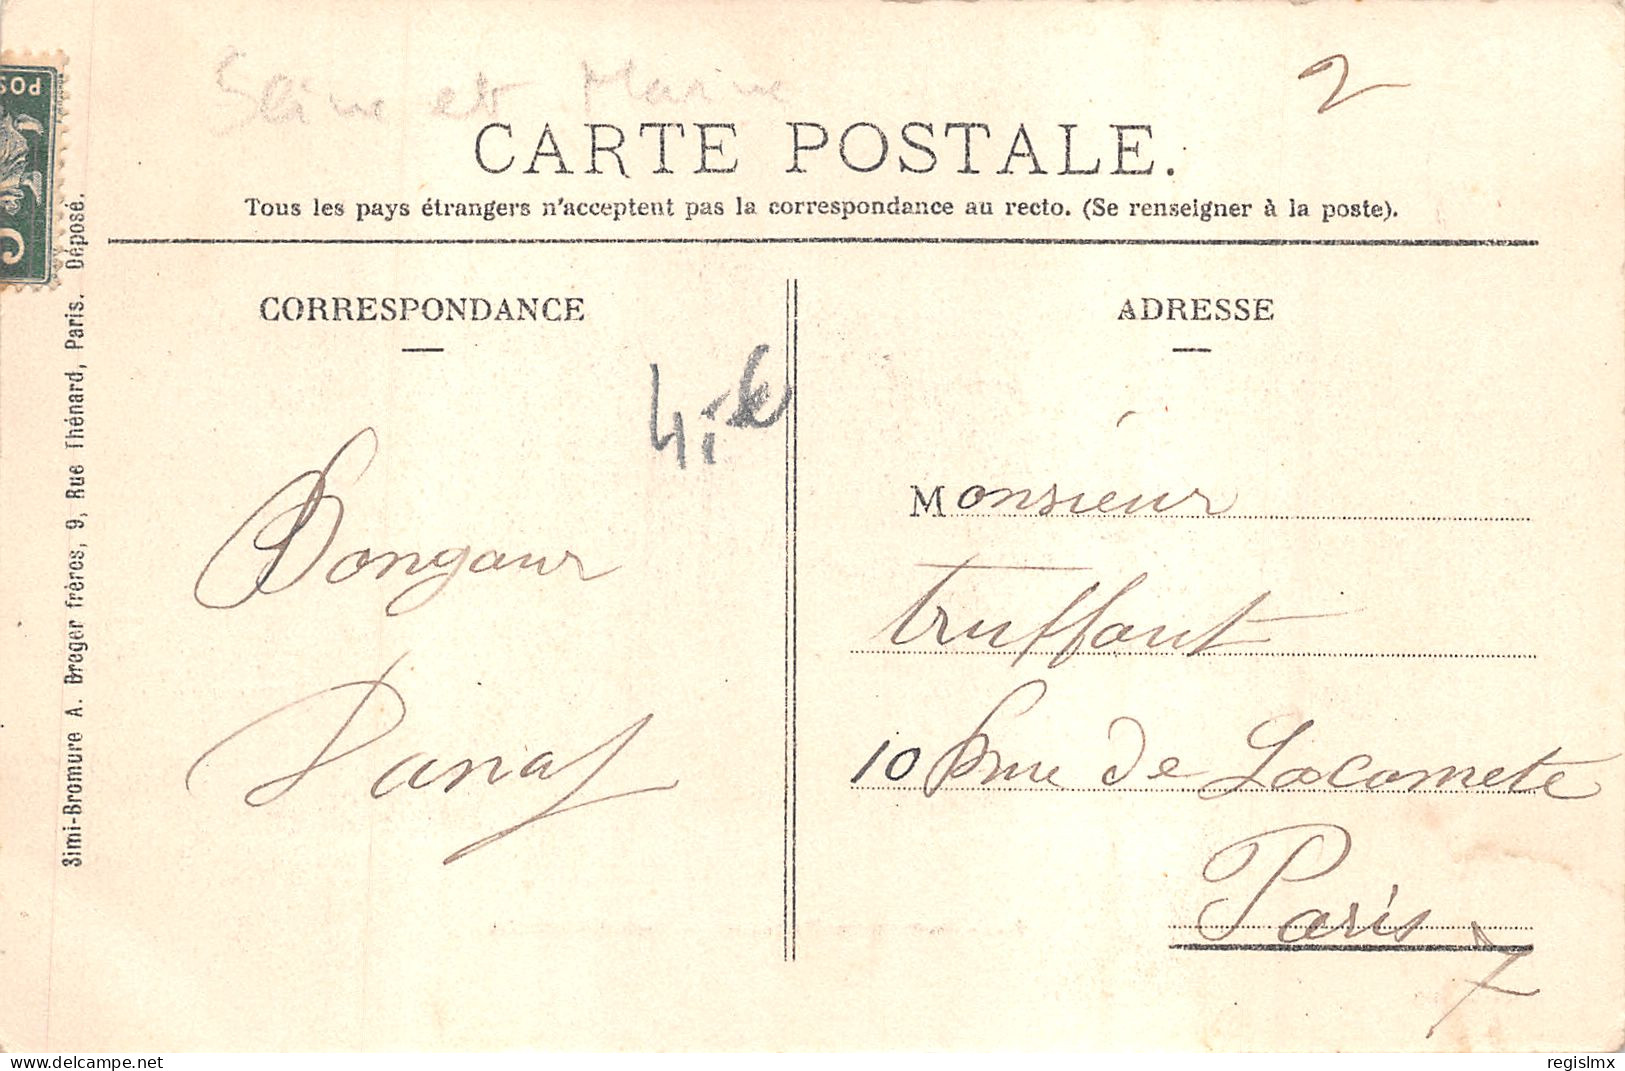 Seine et Marne
2
CARTE POSTALE.
Tous les pays étrangers n'acceptent pas la correspondance au recto. (Se renseigner à la poste).
POS
5
Simi-Bromure A. Breger frères, 9, Rue Thénard, Paris. Déposé.
CORRESPONDANCE
ADRESSE
Bongour
Monsieur
Truffaut
10 Rue de Lacomète
Paris
7
www.delcampe.net
regislmx